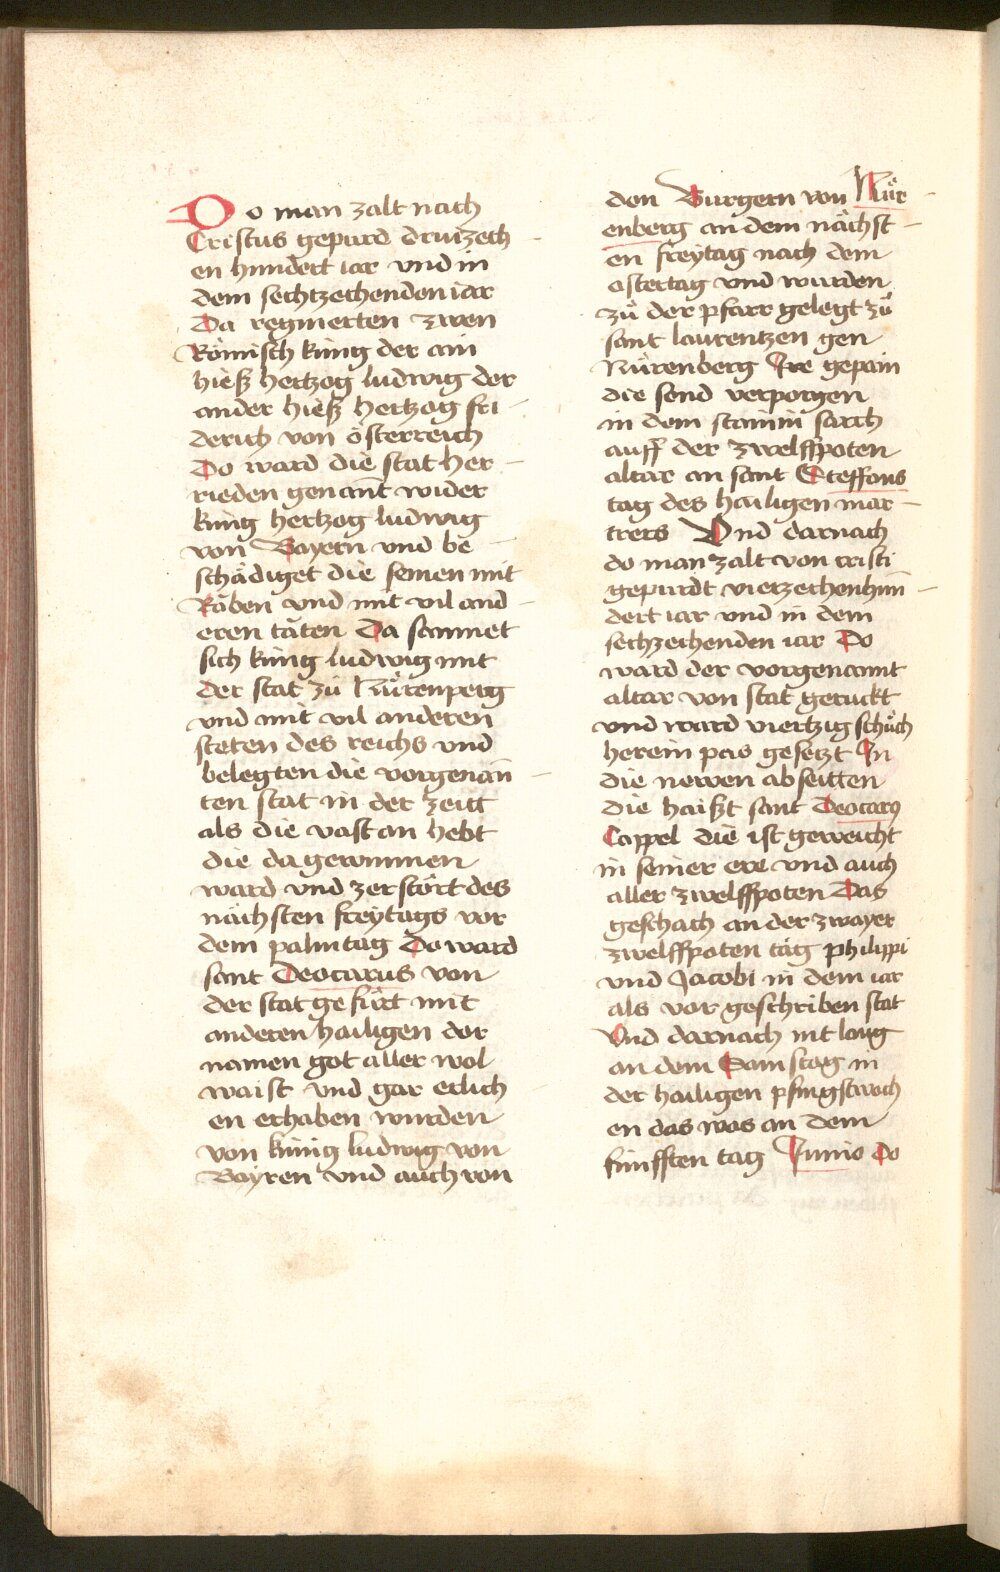 Do man zalt nach
Cristus gepurd druizech
en hundert iar vnd in
dem sechtzechenden iar
Da regnierten zwen
Römisch küng der ain
hieß hertzog ludwig der
ander hieß hertzog fri
derich von österreich
Do ward die stat her
rieden genant wider
küng hertzog ludwig
von Bayern vnd be
schädiget die seinen mit
Räben vnd mit vil and
eren täten Da samnet
sich küng ludwig mit
der stat zů Nůrenperg
vnd mit vil anderen
steten des reichs vnd
belegten die vorgenan̄
ten stat in der zeitt
als die vast an hebt
die da gewunnen
ward vnd zerstört des
nächsten freytags vor
dem palmtag Do ward
sant Deocarus von
der stat gefůrt mit
anderen hailigen der
namen got aller wol
waist vnd gar erlich
en erhaben wurden
von künig ludwig von
Bayren vnd auch von
den Burgern von Nůr
enberg an dem nächst
en freytag nach dem
ostertag vnd wurden
zů der pfarr gelegt zů
sant laurentzen gen
Nůrenberg Ire gepain
die send verporgen
in dem stainin sarch
auff der zwelffpoten
altar an sant Steffans
tag des hailigen mar
trers Vnd darnach
do man zalt von cristi
gepurdt vierzechenhun̄
dert iar vnd in dem
sechzechenden iar Do
ward der vorgenannt
altar von stat geruckt
vnd ward viertzig schůch
herein pas gesetzt In
die newen abseitten
die haißt sant Deocarus
Cappel die ist geweicht
in seiner ere vnd auch
aller zwelffpoten Das
geschach an der zwayer
zwelffpoten tag philippi
vnd Jacobi in dem iar
als vor geschriben stat
Vnd darnach nit lang
an dem Samstag in
der hailigen pfingstwoch
en das was an dem
fünfften tag Junio Do